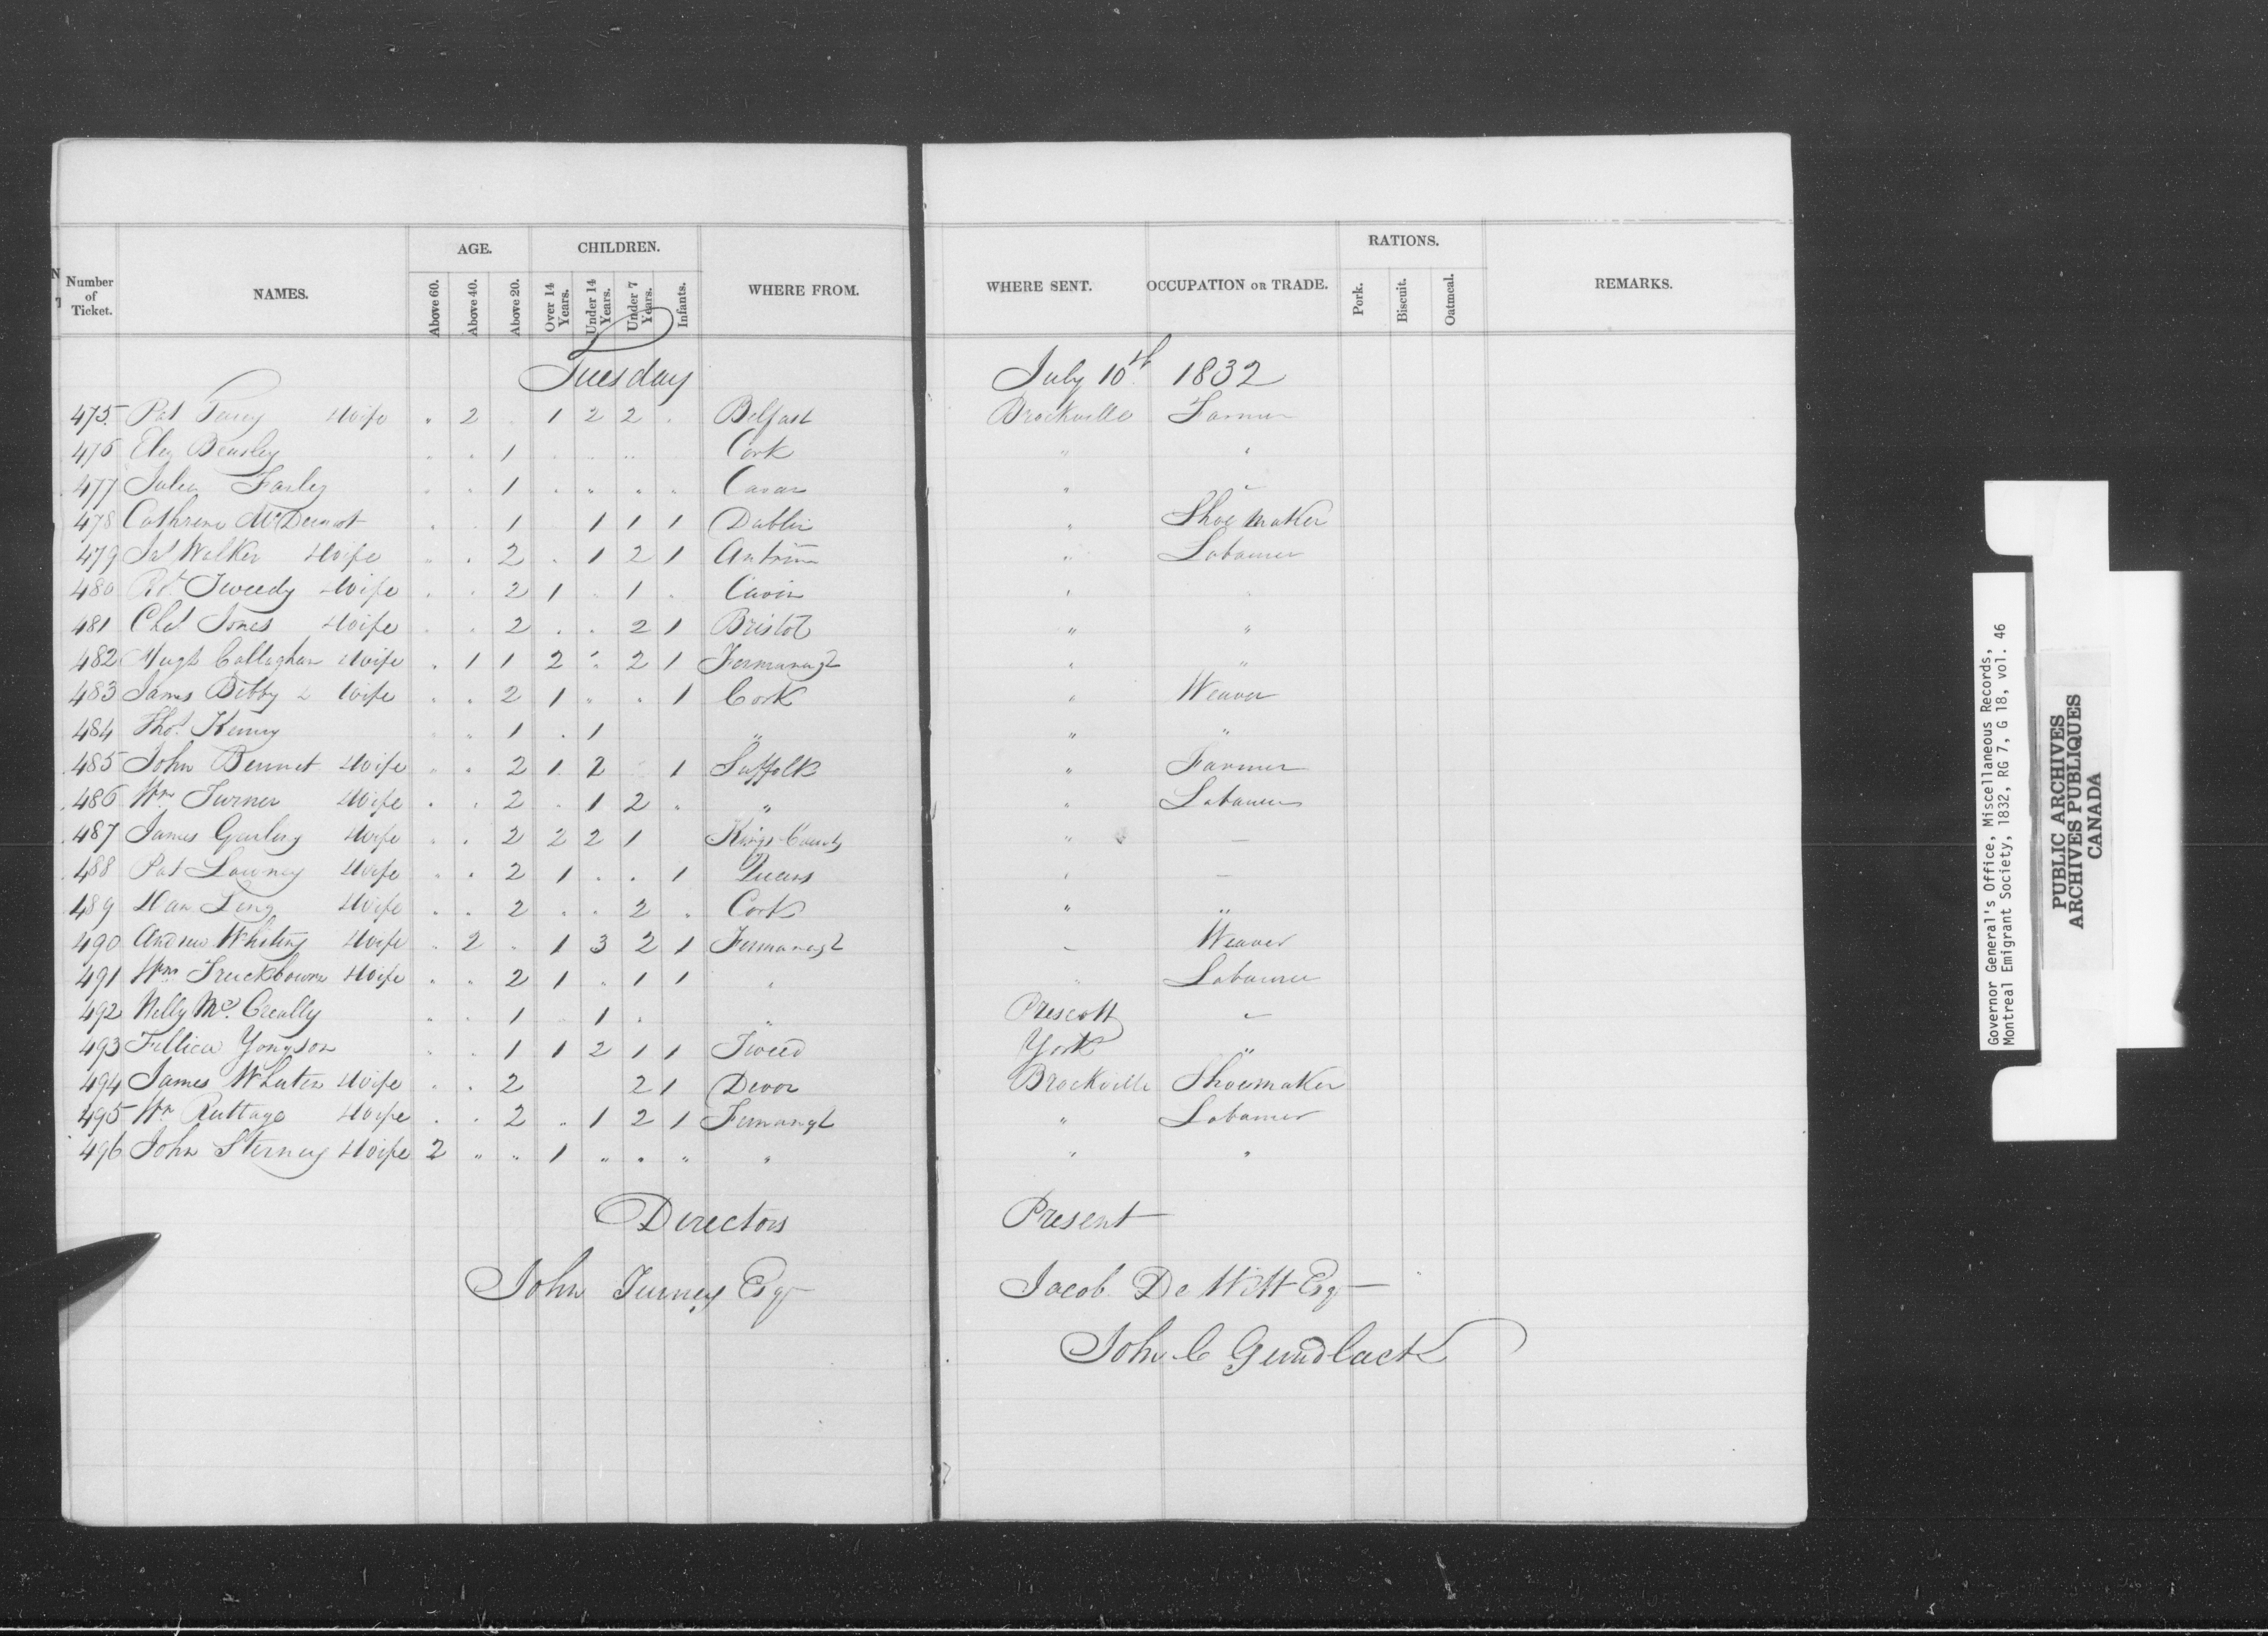 Number of Ticket. NAMES. AGE. Above 60. Above 40. Above 20. CHILDREN. Over 14 Years. Under 14 Years. Under 7 Years. Infants. WHERE FROM. WHERE SENT. OCCUPATION OR TRADE. RATIONS. Pork. Biscuit. Oatmeal. REMARKS.
Tuesday July 10th 1832
475. Pat & Wife " 2 . 1 2 2 . Belfast Brockville Farmer
476 Eliz Beasley . . 1 . . .. Cork " "
477 Julia Farley . . 1 . " . . Cavan " "
478 Cathrine McDermot . . 1 1 1 1 Dublin " Shoe maker
479 Jas Walker & Wife " . 2 . 1 2 1 Antrim " Labourer
480 Rt Tweedy & Wife . . 2 1 . 1 . Cavin " "
481 Chas Jones & Wife . . 2 . . 2 1 Bristol " "
482 Hugh Callaghan & Wife . 1 1 2 . 2 1 Fermanagh " "
483 James Bibby & Wife . . 2 1 " . 1 Cork " Weaver
484 Thos Kenny . " 1 . 1 " " "
485 John Bennet & Wife " . 2 1 2 1 Suffolk " Farmer
486 Wm Turner & Wife . . 2 . 1 2 . " " Labourer
487 James Garling & Wife . . 2 2 2 1 Kings County " —
488 Pat & Wife . . 2 1 . . 1 Queens " —
489 Dan & Wife . . 2 . . 2 . Cork " "
490 Andrew Whiting & Wife . 2 . 1 3 2 1 Fermanagh " Weaver
491 Wm & Wife . . 2 1 . 1 1 " " Labourer
492 Nelly Mc. Creally . . 1 . 1 . " Prescott "
493 Yongson . . 1 1 2 1 1 Tweed York "
494 James & Wife . . 2 2 1 Devon Brockville Shoemaker
495 Wm Ruttage & Wife . . 2 . 1 2 1 Fermangh " Labourer
496 John Sterney & Wife 2 " " 1 " . " " " "
Directors Present
John Turney Esqr Jacob De Witt Esqr
John C Gundlack
Governor General's Office, Miscellaneous Records,
Montreal Emigrant Society, 1832, RG 7, G 18, vol. 46
PUBLIC ARCHIVES
ARCHIVES PUBLIQUES
CANADA